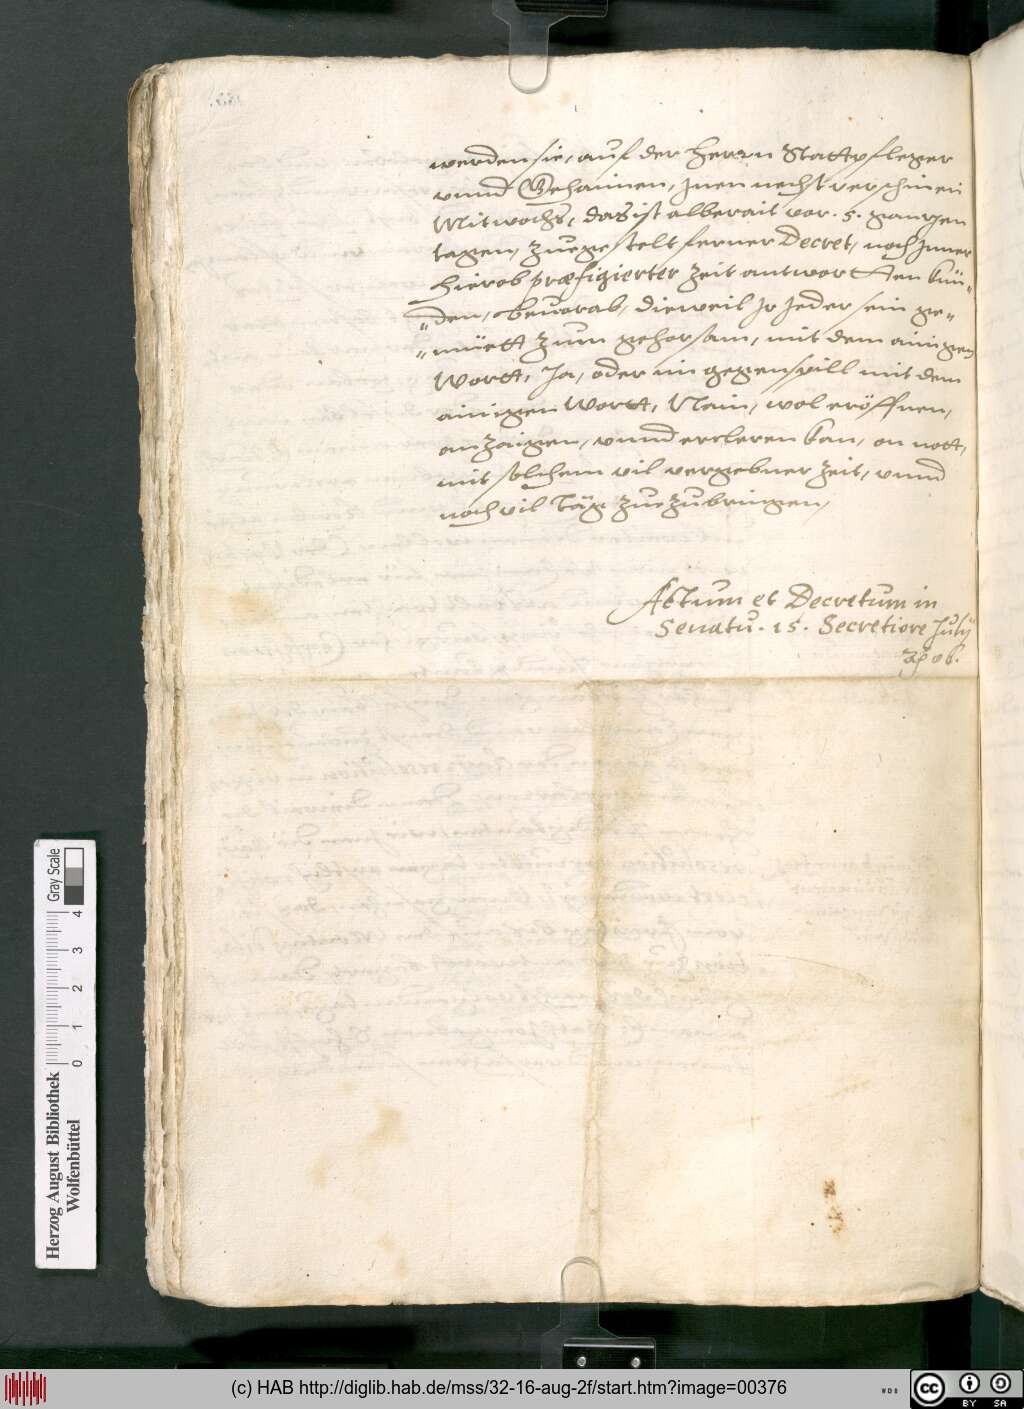 werden sie, auf der Herrn Stattpfleger
vnnd Gehaimen, Jnen nechst verschinen
Mitwochs, das ist alberait vor .5. gantzen
tagen, zuegestelt ferner Decret, noch Jnner
hierob præfigierter Zeit antwortten kün=
"den, beuorab, dieweil Jr Jeder sein ge="
"müett zum gehorsam, mit dem ainigen
Wortt, Ja, oder im gegenspill mit dem
ainigen Wortt, Nain, wol eröffnen,
anzaigen, vnndercleren kan, on nott,
mit solchem vil vergebner Zeit, vnnd
noch vil Täg zuezubringen,
Actum et Decretum in
Senatu .15. Secretiore Julij
Herzog August Bibliothek
Wolfenbüttel
0 1 2 3 4
Gray Scale
(c) HAB http://diglib.hab.de/mss/32-16-aug-2f/start.htm?image=00376
WDB
cc BY SA